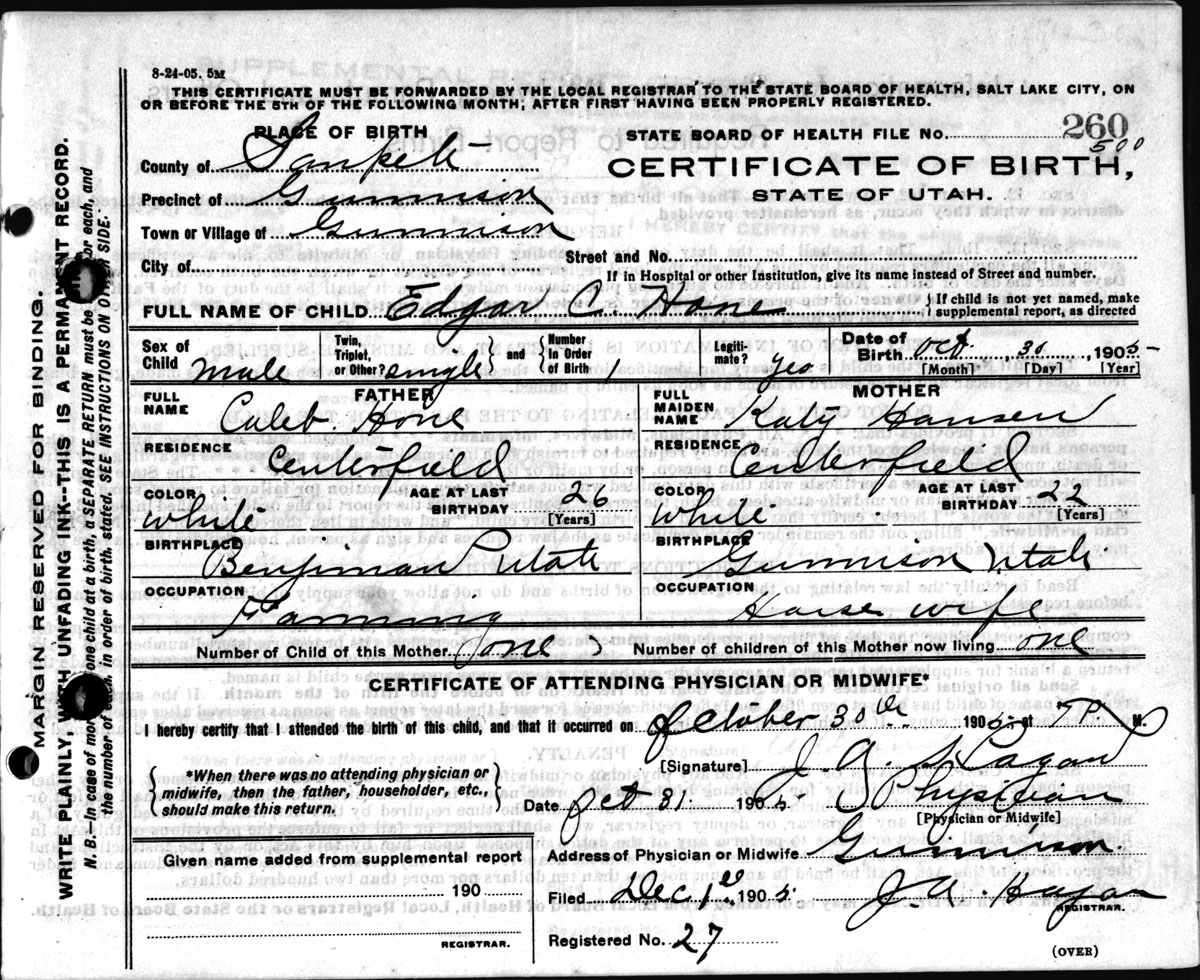 8-24-05. 5M
THIS CERTIFICATE MUST BE FORWARDED BY THE LOCAL REGISTRAR TO THE STATE BOARD OF HEALTH, SALT LAKE CITY, ON
OR BEFORE THE 5TH OF THE FOLLOWING MONTH; AFTER FIRST HAVING BEEN PROPERLY REGISTERED.
PLACE OF BIRTH
STATE BOARD OF HEALTH FILE No. 260
500
County of Sanpete
CERTIFICATE OF BIRTH,
STATE OF UTAH.
Precinct of Gunnison
Town or Village of Gunnison
Street and No.
City of
If in Hospital or other Institution, give its name instead of Street and number.
FULL NAME OF CHILD Edgar C. Hone {If child is not yet named, make supplemental report, as directed
Sex of Child Male Twin, Triplet, or Other? single } and { Number In Order of Birth 1 Legitimate? yes Date of Birth Oct. 30, 1905
[Month] [Day] [Year]
FATHER
MOTHER
FULL NAME Caleb Hone
FULL MAIDEN NAME Katy Hansen
RESIDENCE Centerfield
RESIDENCE Centerfield
COLOR White AGE AT LAST BIRTHDAY 26 [Years]
COLOR White AGE AT LAST BIRTHDAY 22 [Years]
BIRTHPLACE Benjiman Utah
BIRTHPLACE Gunnison Utah
OCCUPATION Farming
OCCUPATION House wife
Number of Child of this Mother one
Number of children of this Mother now living one
CERTIFICATE OF ATTENDING PHYSICIAN OR MIDWIFE*
I hereby certify that I attended the birth of this child, and that it occurred on October 30th 1905, at 7 P M.
{*When there was no attending physician or midwife, then the father, householder, etc., should make this return.}
[Signature] J. A. Hagan
Date Oct 31. 1905. Physician
[Physician or Midwife]
Given name added from supplemental report
190
REGISTRAR.
Address of Physician or Midwife Gunnison.
Filed Dec 1st 1905 J. A. Hagan
REGISTRAR.
Registered No. 27
(OVER)
MARGIN RESERVED FOR BINDING.
WRITE PLAINLY WITH UNFADING INK--THIS IS A PERMANENT RECORD.
N. B.--In case of more than one child at a birth, a SEPARATE RETURN must be made for each, and
the number of each, in order of birth, stated. SEE INSTRUCTIONS ON OTHER SIDE.